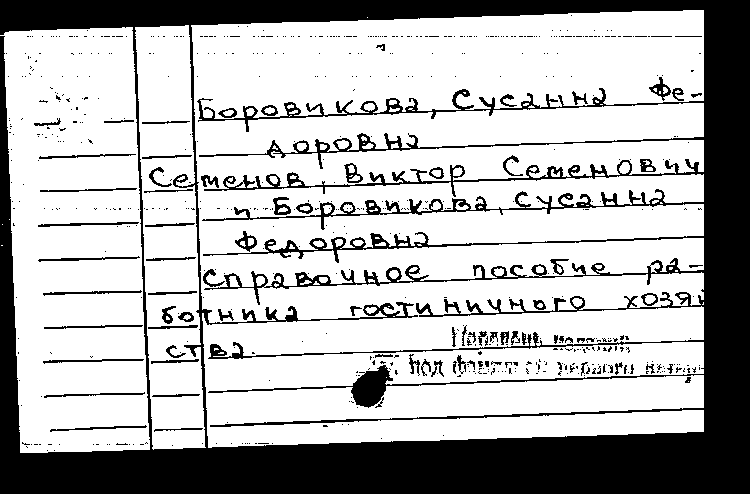 Боровикова, Сусанна Фе-
доровна
Семенов, Виктор Семенович
и Боровикова, Сусанна
Федоровна
Справочное пособие ра-
ботника гостиничного хозяй
ства.
под первого